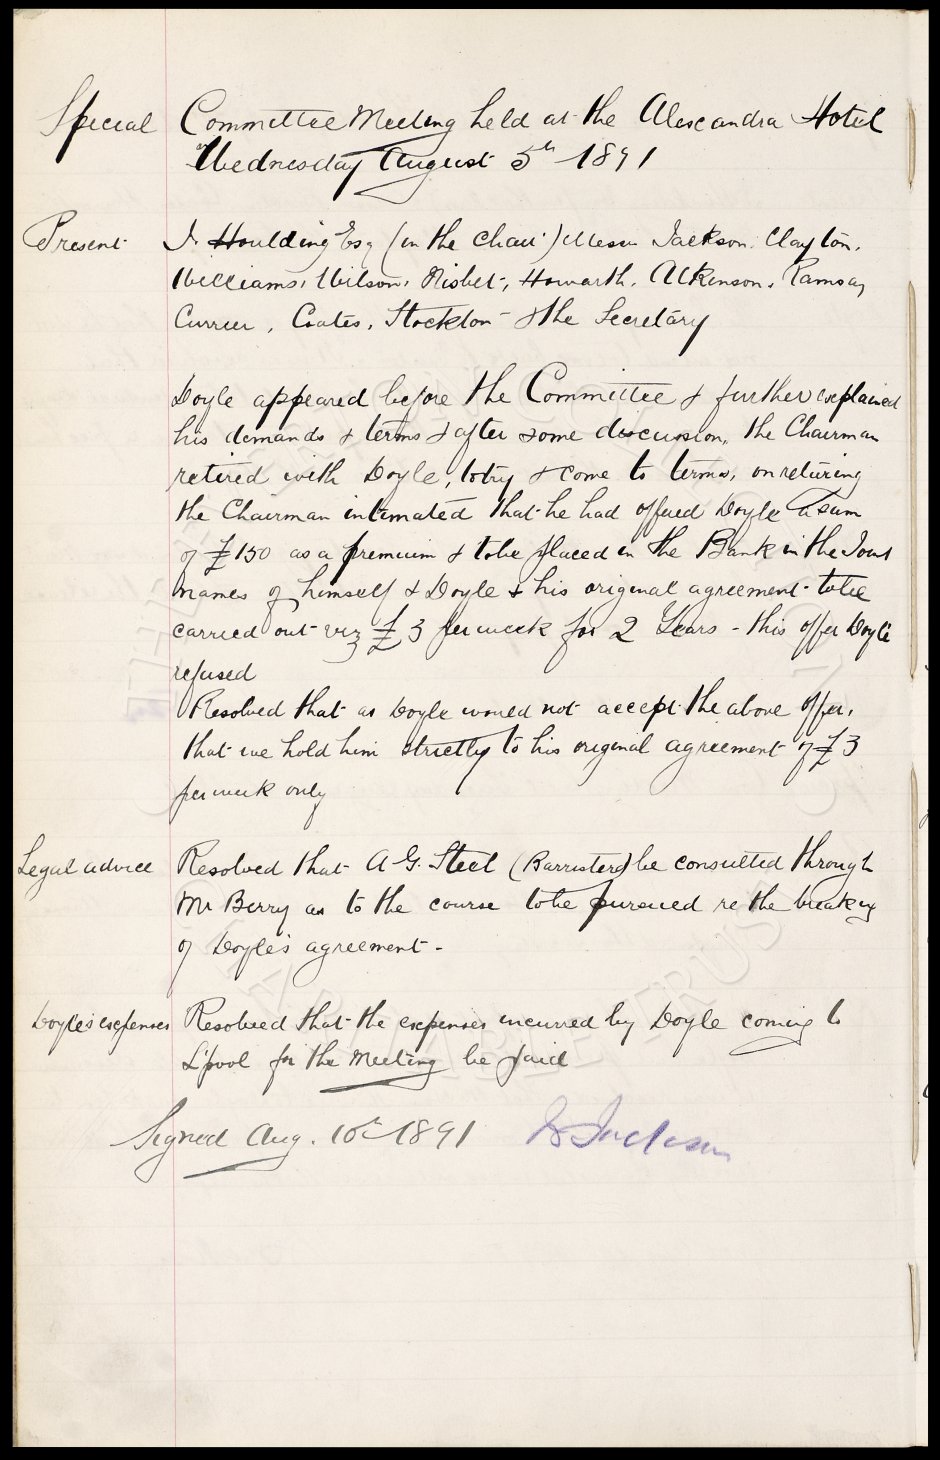 Special Committee Meeting held at the Alexandra Hotel
Wednesday August 5th 1891
Present J. Houlding Esq (in the Chair) Messrs Jackson. Clayton.
Williams, Wilson, Nisbet, Howarth. Atkinson. Ramsay
Currier, Coates, Stockton & the Secretary
Doyle appeared before the Committee & further explained
his demands & terms & after some discussion, the Chairman
retired with Doyle, to try & come to terms, on returing
the Chairman intimated that he had offered Doyle a sum
of £150 as a premium & to be placed in the Bank in the Joint
names of himself & Doyle & his original agreement to be
carried out viz £3 per week for 2 Years - this offer Doyle
refused
Resolved that as Doyle would not accept the above offer,
that we hold him strictly to his original agreement of £3
per week only
Legal advice Resolved that A G. Steel (Barrister) be consulted through
Mr Berry as to the course to be pursued re the breaking
of Doyle's agreement -
Doyle's expenses Resolved that the expenses incurred by Doyle coming to
L'pool for the Meeting be paid
Signed Aug. 10th 1891 Jackson